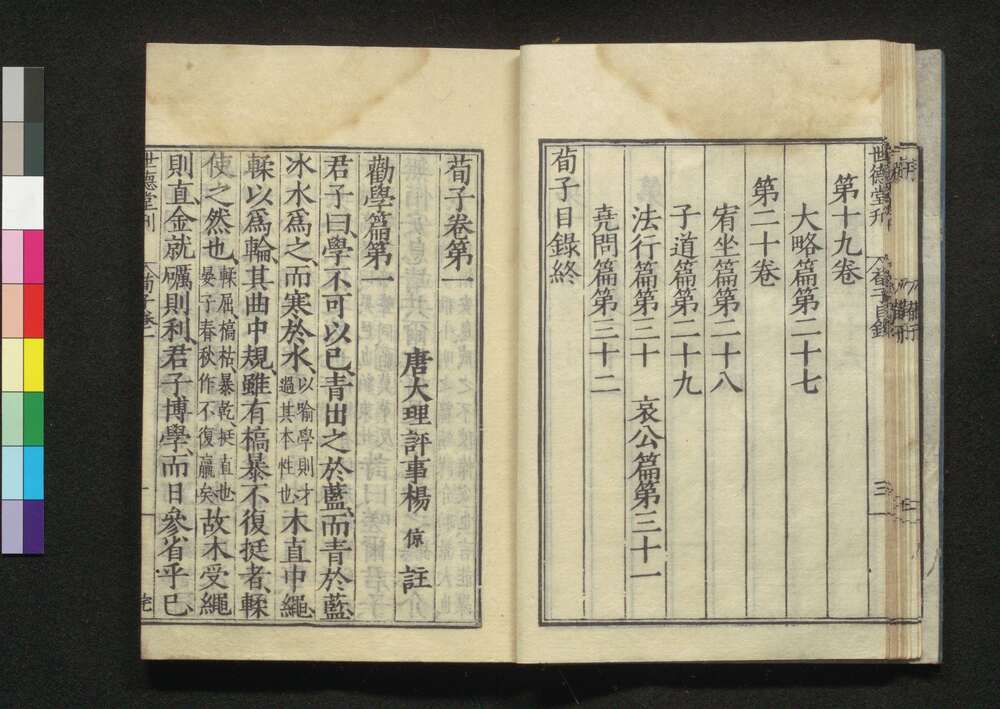 世德堂刊
荀子目錄
三
第十九卷
大略篇第二十七
第二十卷
宥坐篇第二十八
子道篇第二十九
法行篇第三十　哀公篇第三十一
堯問篇第三十二
荀子目錄終
荀子卷第一
唐大理評事楊　倞　註
勸學篇第一
君子曰、學不可以已、青出之於藍、而青於藍、
冰水爲之、而寒於水、以喻學則才過其本性也木直中繩、
輮以爲輪、其曲中規、雖有槁暴不復挺者、輮
使之然也、輮屈、槁枯、暴乾、挺直也晏子春秋作不復贏矣故木受繩
則直、金就礪則利、君子博學、而日參省乎已、
世德堂刊
荀子卷一
一